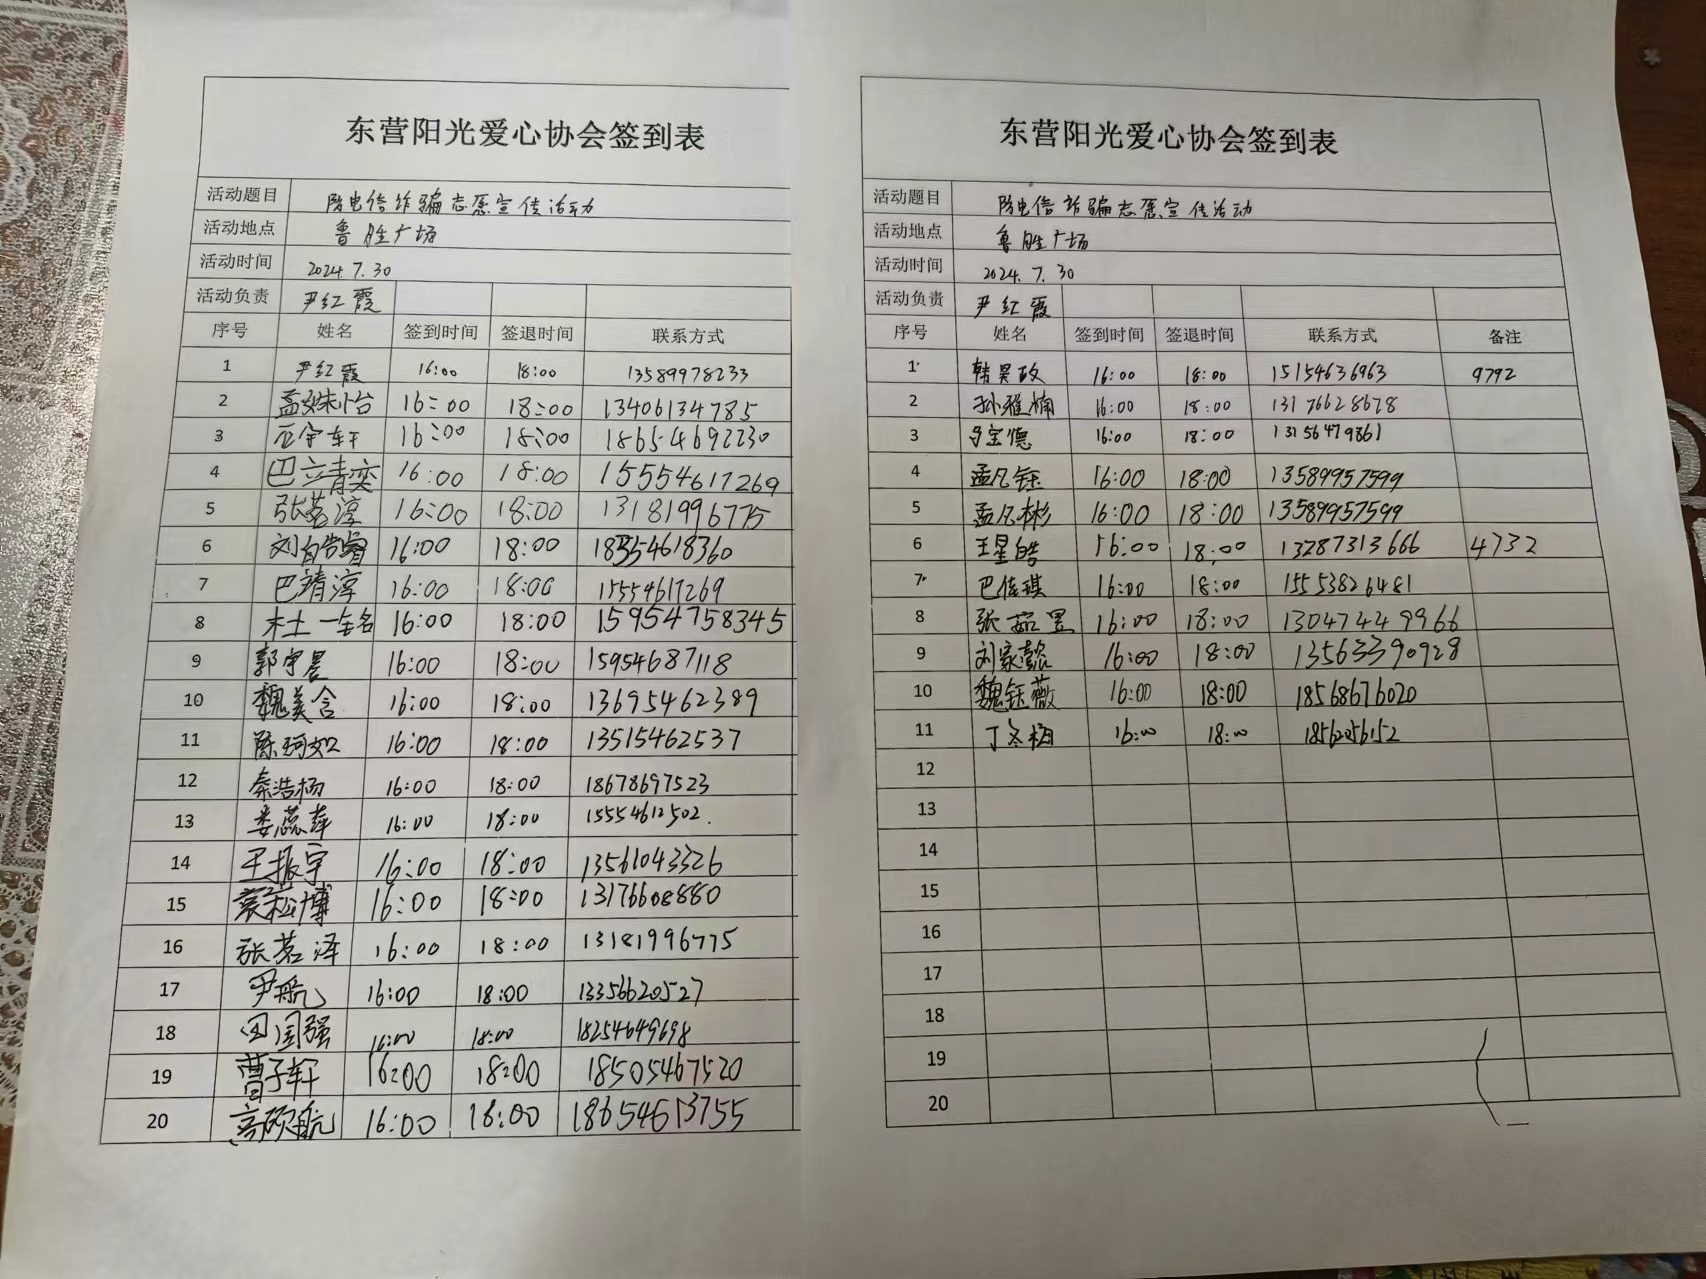 东营阳光爱心协会签到表
活动题目 防电信诈骗志愿宣传活动
活动地点 鲁胜广场
活动时间 2024.7.30
活动负责 尹红霞
序号 姓名 签到时间 签退时间 联系方式
1 尹红霞 16:00 18:00 13589978233
2 孟姝怡 16:00 18:00 13406134785
3 宇轩 16:00 18:00 18654692230
4 巴靖奕 16:00 18:00 15554617269
5 张茗淳 16:00 18:00 13181996775
6 刘皓睿 16:00 18:00 18354618360
7 巴靖淳 16:00 18:00 15554617269
8 杜一铭 16:00 18:00 159547758345
9 郭宇晨 16:00 18:00 15954687118
10 魏美含 16:00 18:00 13695462389
11 陈珂如 16:00 18:00 13515462537
12 秦浩杨 16:00 18:00 18678697523
13 娄蕊萍 16:00 18:00 15554612502.
14 王振宇 16:00 18:00 13561043326
15 袁松博 16:00 18:00 13176608880
16 张茗泽 16:00 18:00 13181996775
17 尹航 16:00 18:00 13356620527
18 田国强 16:00 18:00 18254649698
19 曹子轩 16:00 18:00 18505467520
20 高硕航 16:00 18:00 18654613755
东营阳光爱心协会签到表
活动题目 防电信诈骗志愿宣传活动
活动地点 鲁胜广场
活动时间 2024.7.30
活动负责 尹红霞
序号 姓名 签到时间 签退时间 联系方式 备注
1 韩昊政 16:00 18:00 15154636963 9792
2 孙雅楠 16:00 18:00 13176628678
3 马宝德 16:00 18:00 13156479861
4 孟凡钰 16:00 18:00 13589957599
5 孟凡彬 16:00 18:00 13589957599
6 王星皓 16:00 18:00 13287313666 4732
7 巴佳琪 16:00 18:00 15553826481
8 张茹昱 16:00 18:00 13047449966
9 刘家懿 16:00 18:00 13563390928
10 魏钰薇 16:00 18:00 18568676020
11 丁冬梅 16:00 18:00 18562056152
12
13
14
15
16
17
18
19
20